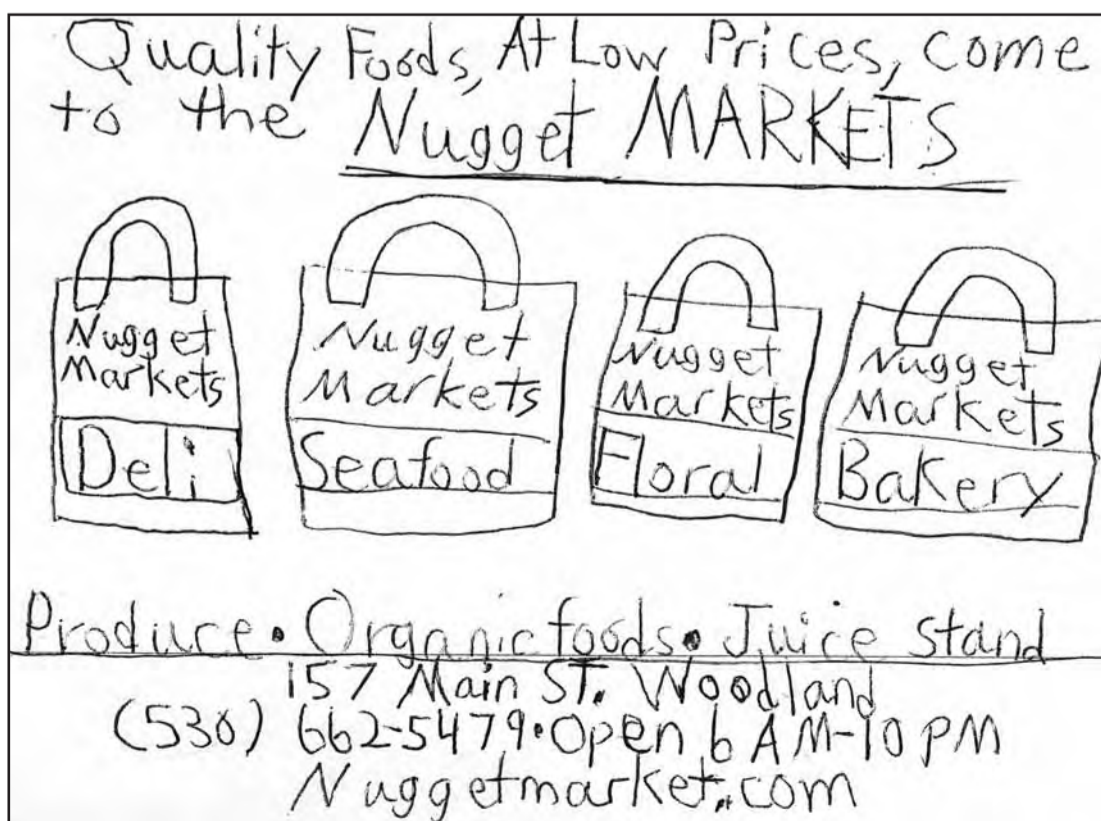 Quality Foods, At Low Prices, come
to the Nugget MARKETS
Nugget
Markets
Deli
Nugget
Markets
Seafood
Nugget
Markets
Floral
Nugget
Markets
Bakery
Produce • Organic foods • Juice stand
157 Main ST. Woodland
(530) 662-5479 • Open 6 AM-10 PM
Nuggetmarket.com